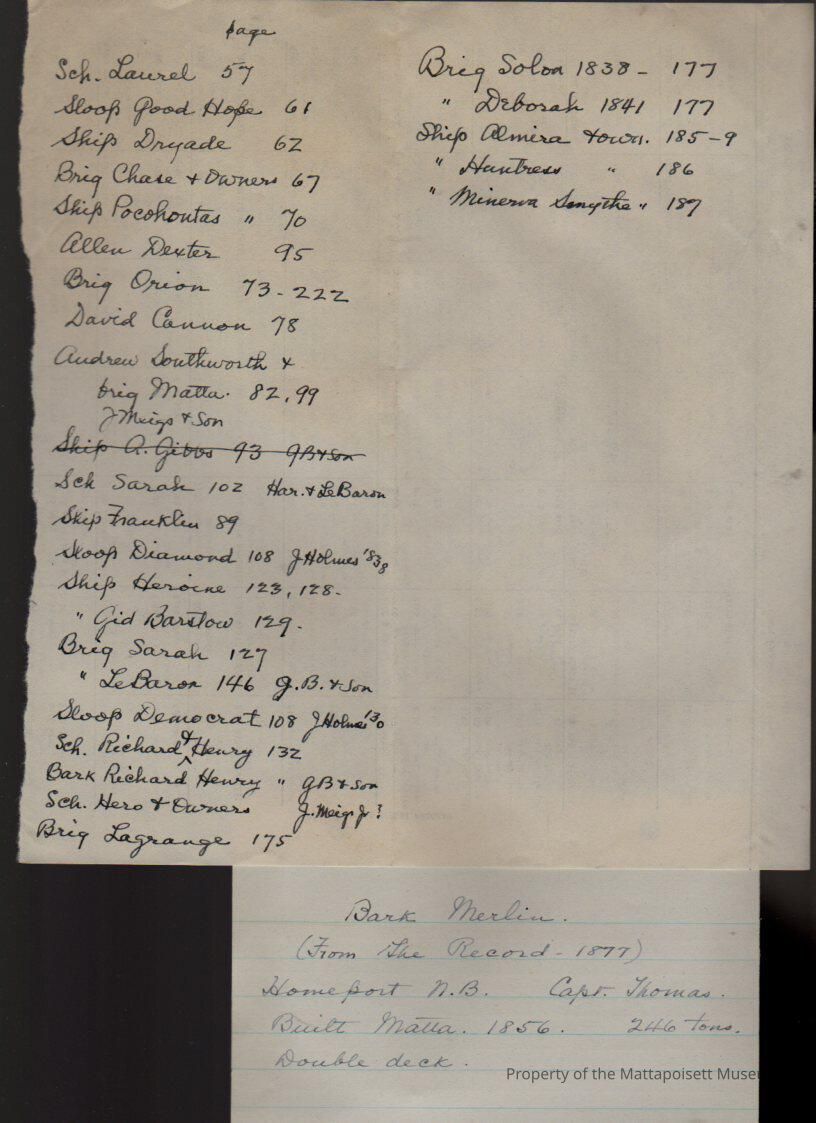 page
Sch. Laurel 57
Sloop Good Hope 61
Ship Dryade 62
Brig Chase + Owners 67
Ship Pocohontas " 70
Allen Dexter 95
Brig Orion 73-222
David Cannon 78
Andrew Southworth +
brig Matta. 82, 99
J Meigs + Son
Ship A. Gibbs 93 GB+Son
Sch Sarah 102 Har. + LeBaron
Ship Franklin 89
Sloop Diamond 108 J Holmes '38
Ship Heroine 123, 128-
" Gid Barstow 129.
Brig Sarah 127
" LeBaron 146 G.B. + Son
Sloop Democrat 108 J Holmes '30
Sch. Richard + Henry 132
Bark Richard Henry " GB + Son
Sch. Hero + Owners J. Meigs Jr ?
Brig Lagrange 175
Brig Solon 1838 - 177
" Deborah 1841 177
Ship Almira + own. 185-9
" Huntress " 186
" Minerva Smythe " 187
Bark Merlin.
(From The Record - 1877)
Homeport N.B. Capt. Thomas.
Built Matta. 1856. 246 tons.
Double deck.
Property of the Mattapoisett Museu